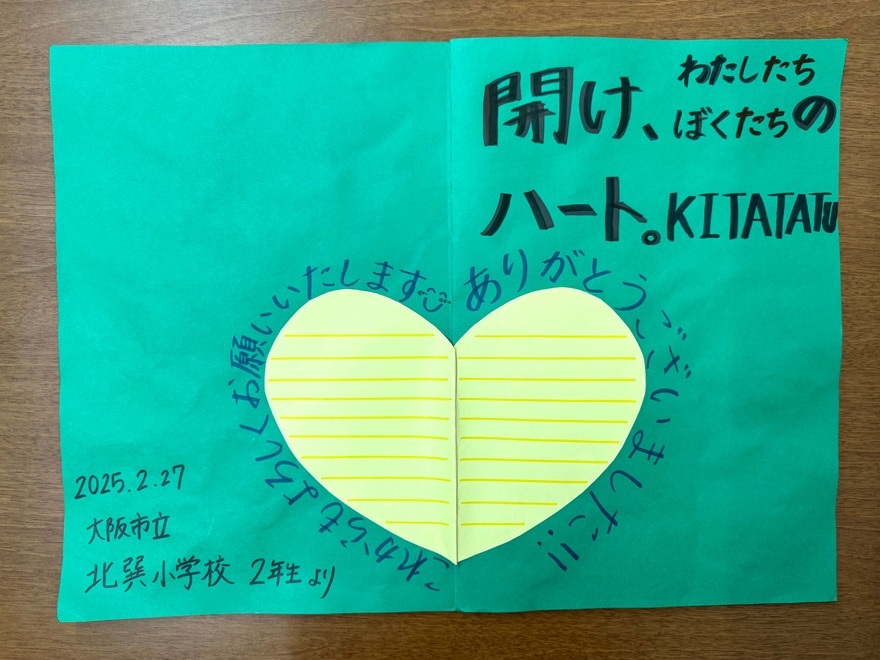 開け、わたしたち
ぼくたちの
ハート。KITATATU
ありがとうございました!!
これからもよろしくお願いいたします
2025.2.27
大阪市立
北巽小学校 2年生より